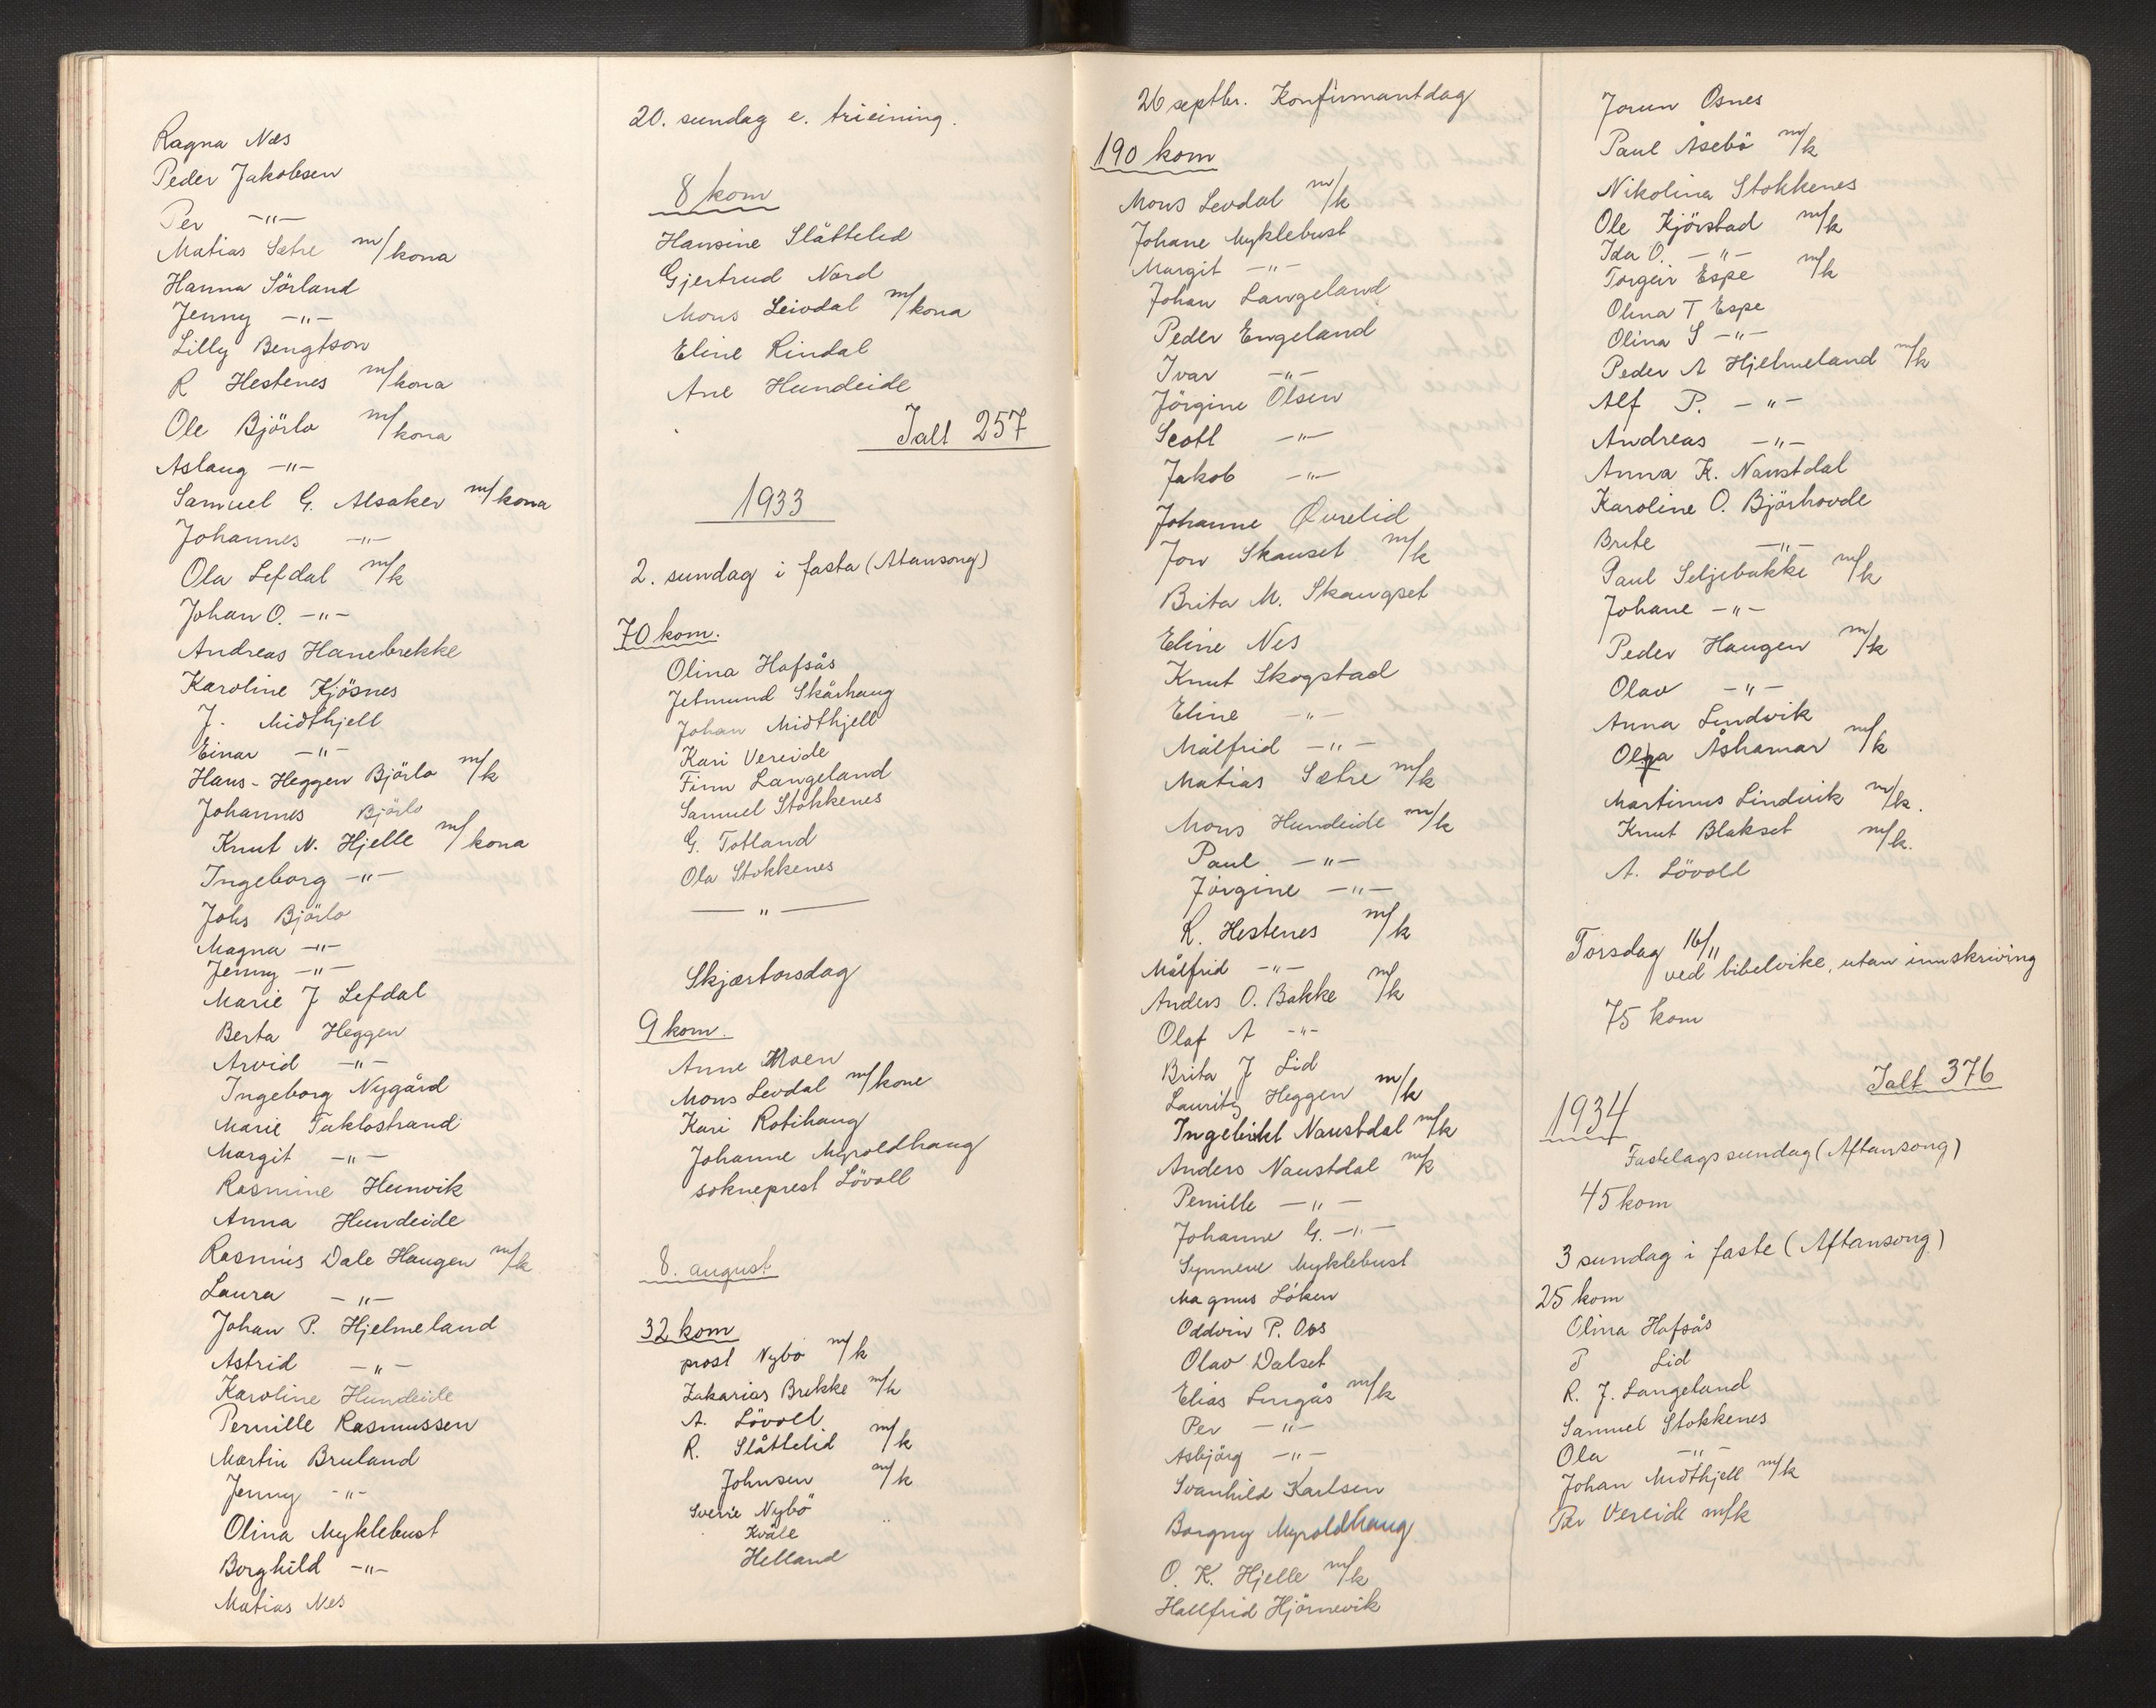 Ragna Nes
Peder Jakobsen
Per —"—
Matias Sætre m/kona
Hanna Sörland
Jenny —"—
Lilly Bengtson
R Hestenes m/kona
Ole Björlo m/kona
Aslaug —"—
Samuel G. Alsaker m/kona
Johannes —"—
Ola Lefdal m/k
Johan O. —"—
Andreas Hanebrekke
Karoline Kjösnes
J. Midthjell
Einar —"—
Hans-Heggen Björlo m/k
Johannes Björlo
Knut N. Hjelle m/kona
Ingeborg —"—
Johs Björlo
Magna —"—
Jenny —"—
Marie J Lefdal
Berta Heggen
Arvid —"—
Ingeborg Nygård
Marie Taklostrand
Margit —"—
Rasmine Hunvik
Anna Hundeide
Rasmus Dale Haugen m/k
Laura —"—
Johan P. Hjelmeland
Astrid —"—
Karoline Hundeide
Pernille Rasmussen
Martin Bruland
Jenny —"—
Olina Myklebust
Borghild —"—
Matias Nes
20. sundag e. trieining.
8 kom
Hansine Slåttelid
Gjertrud Nord
Mons Leivdal m/kona
Eline Rindal
Ane Hundeide
Ialt 257
1933
2. sundag i fasta (Atansong)
70 kom.
Olina Hafsås
Jetmund Skårhaug
Johan Midthjell
Kari Vereide
Finn Langeland
Samuel Stokkenes
G. Totland
Ola Stokkenes
— " —
Skjærtorsdag
9 kom.
Anne Moen
Mons Levdal m/kone
Kari Rotihaug
Johanne Myroldhaug
sokneprest Lövoll
8. august
32 kom
prost Nybö m/k
Zakarias Brekke m/k
A. Lövoll
R. Slåttelid m/k
Johnsen m/k
Sverre Nybö
Kvåle
Helland
26 septbr. Konfirmantdag
190 kom
Mons Levdal m/k
Johane Myklebust
Margit —"—
Johan Langeland
Peder Engeland
Ivar —"—
Jörgine Olsen
Scott —"—
Jakob —"—
Johanne Qvrelid
Jon Skauset m/k
Brita M. Skaugset
Eline Nes
Knut Skogstad
Eline —"—
Målfrid —"—
Matias Sætre m/k
Mons Hundeide m/k
Paul —"—
Jörgine —"—
R. Hestenes m/k
Målfrid —"—
Anders O. Bakke m/k
Olaf A —"—
Brita J Lid
Lauritz Heggen m/k
Ingebrikt Naustdal m/k
Anders Naustdal m/k
Pernille —"—
Johanne G. —"—
Synneve Myklebust
Magnus Löken
Oddvin P. Oos
Olav Dalset
Elias Lingås m/k
Per —"—
Asbjörg —"—
Svanhild Karlsen
Borgny Myroldhaug
O. K. Hjelle m/k
Hallfrid Hjörnevik
Jorun Osnes
Paul Åsebö m/k
Nikolina Stokkenes
Ole Kjörstad m/k
Ida O. —"—
Torgeir Espe m/k
Olina T Espe
Olina S —"—
Peder A Hjelmeland m/k
Alf P. —"—
Andreas —"—
Anna K. Naustdal
Karoline O. Björhovde
Brite —"—
Paul Seljebakke m/k
Johane —"—
Peder Haugen m/k
Olav —"—
Anna Lindvik
Olga Åshamar m/k
Martinus Lindvik m/k.
Knut Blakset m/k.
A. Lövoll
Torsdag 16/11
ved bibelvike, utan innskriving
75 kom
Ialt 376
1934
Fastelagssundag (Aftansong)
45 kom
3 sundag i faste (Aftansong)
25 kom
Olina Hafsås
P Lid
R. J. Langeland
Samuel Stokkenes
Ola —"—
Johan Midthjell m/k
Per Vereide m/k